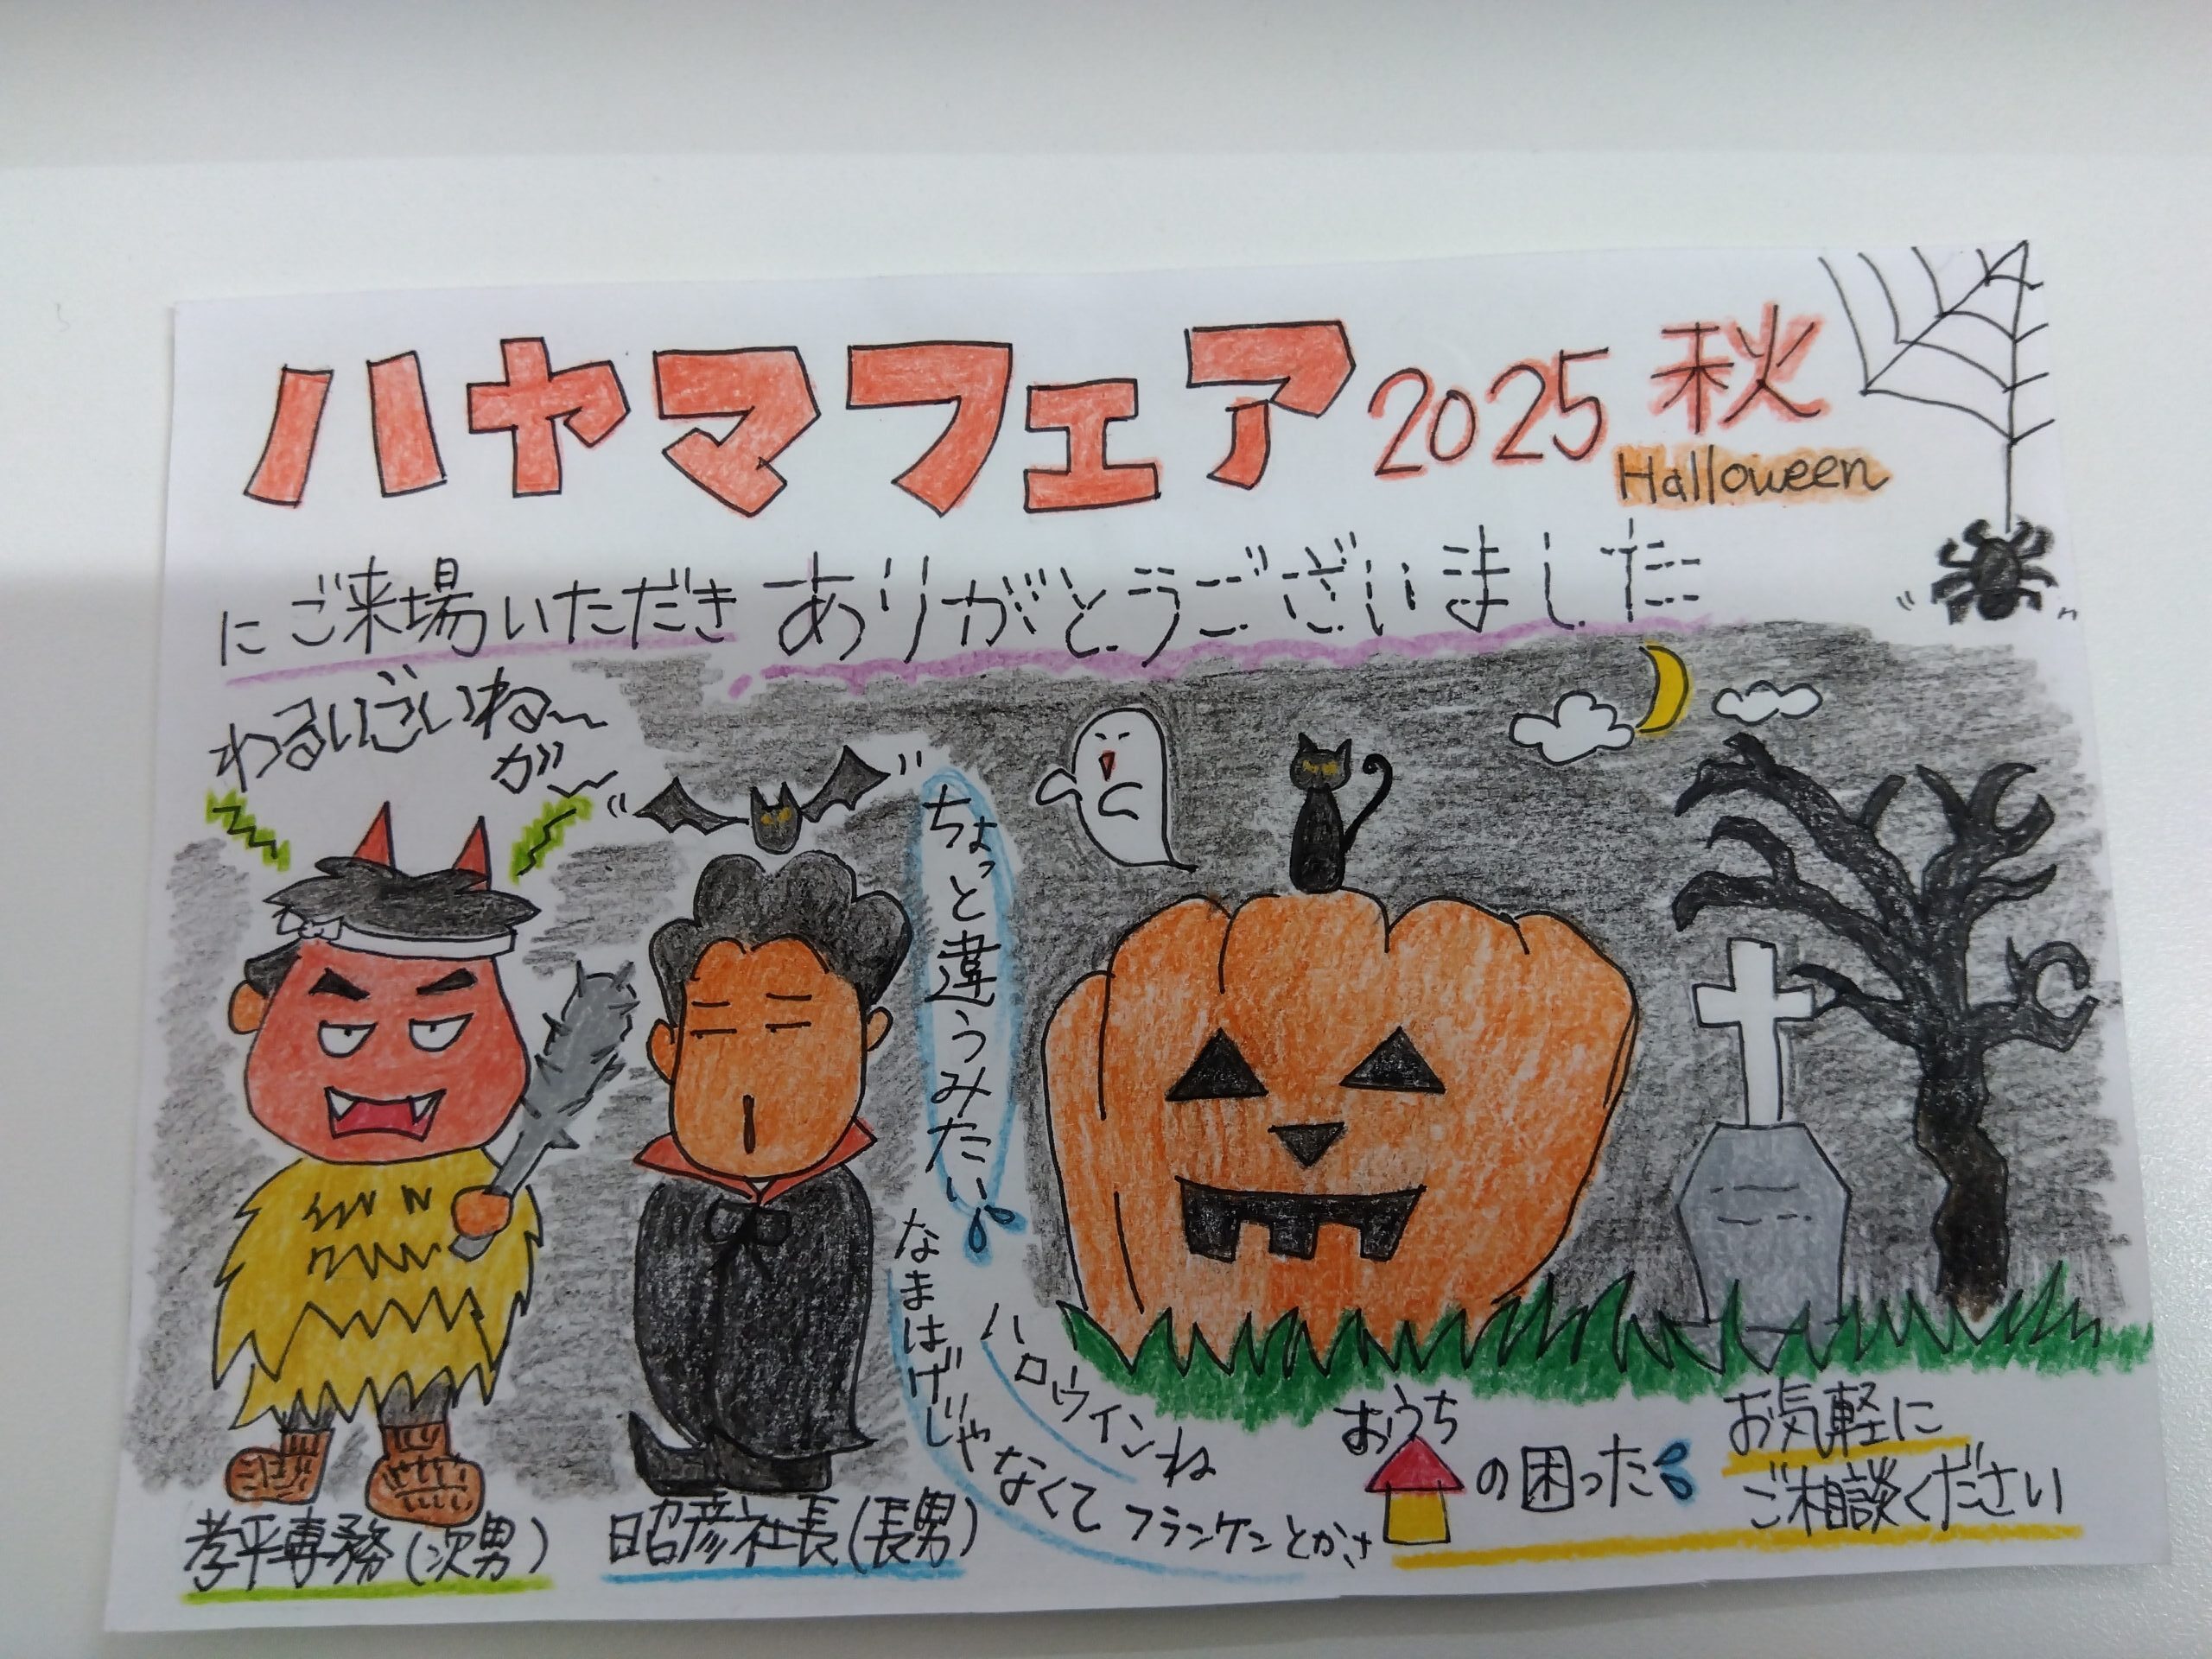 ハヤマフェア2025 秋
Halloween
にご来場いただきありがとうございました
わるいごはいね~
が~
ちょっと違うみたい
ハロウィンね
なまはげじゃなくてフランケンとかさ
孝平専務(次男)
昭彦社長(長男)
おうち
の困った
お気軽に
ご相談ください